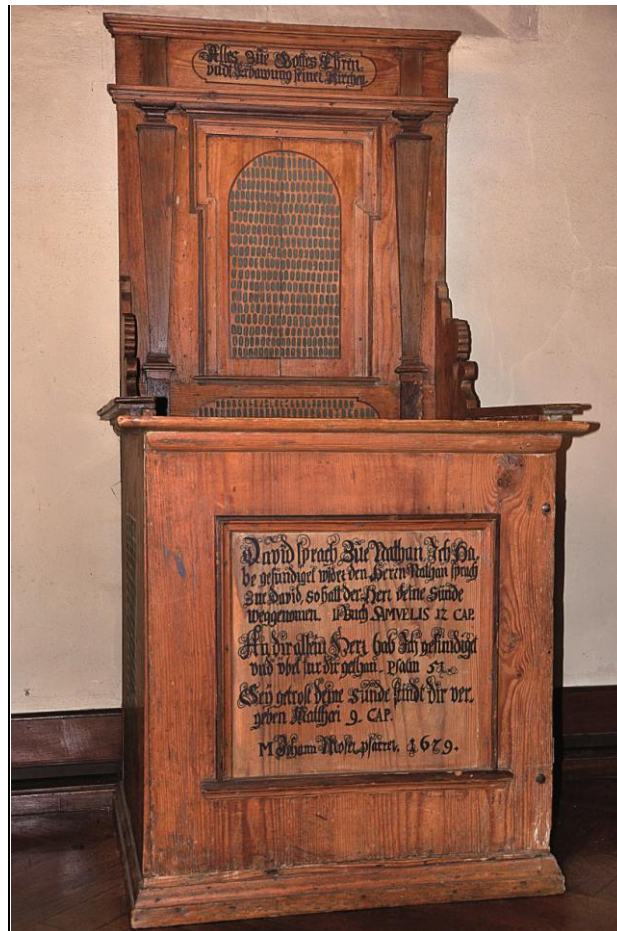 Alles Zue Gottes Ehren
vndt Erbawung seiner Kirchen
David sprach Zue Nathan, Ich Ha-
be gesündiget wider den Herrn Nathan sprach
Zue David, so hatt der Herr deine sünde
weggenomen. II Buch SAMVELIS 12 CAP.
An dir allein Herr hab Ich gesündiget
vnd vbel fur dir gethan. Psalm 51.
Sey getrost deine sünde sindt dir ver-
geben Matthæi 9. CAP.
M Johann Moser pfarrer. 1679.